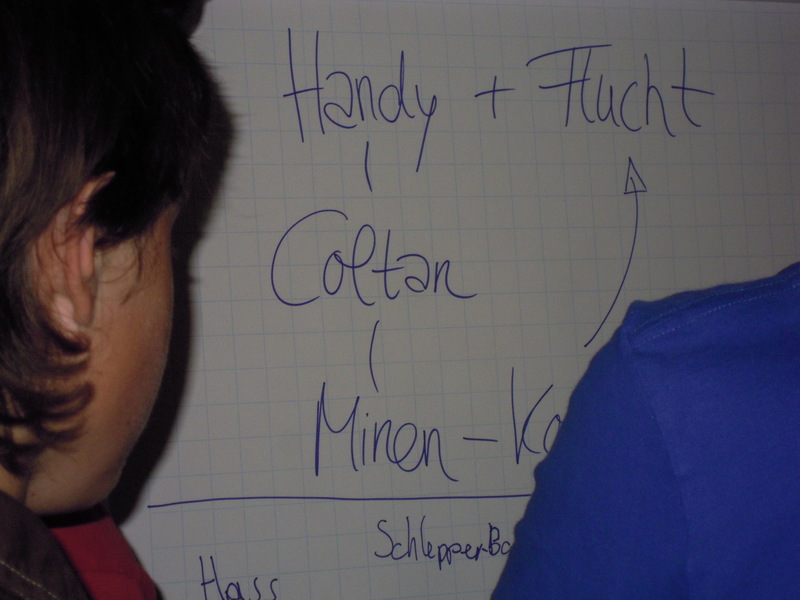 Handy + Flucht
Coltan
Minen - Ko
Schlepper-Ba
Hass